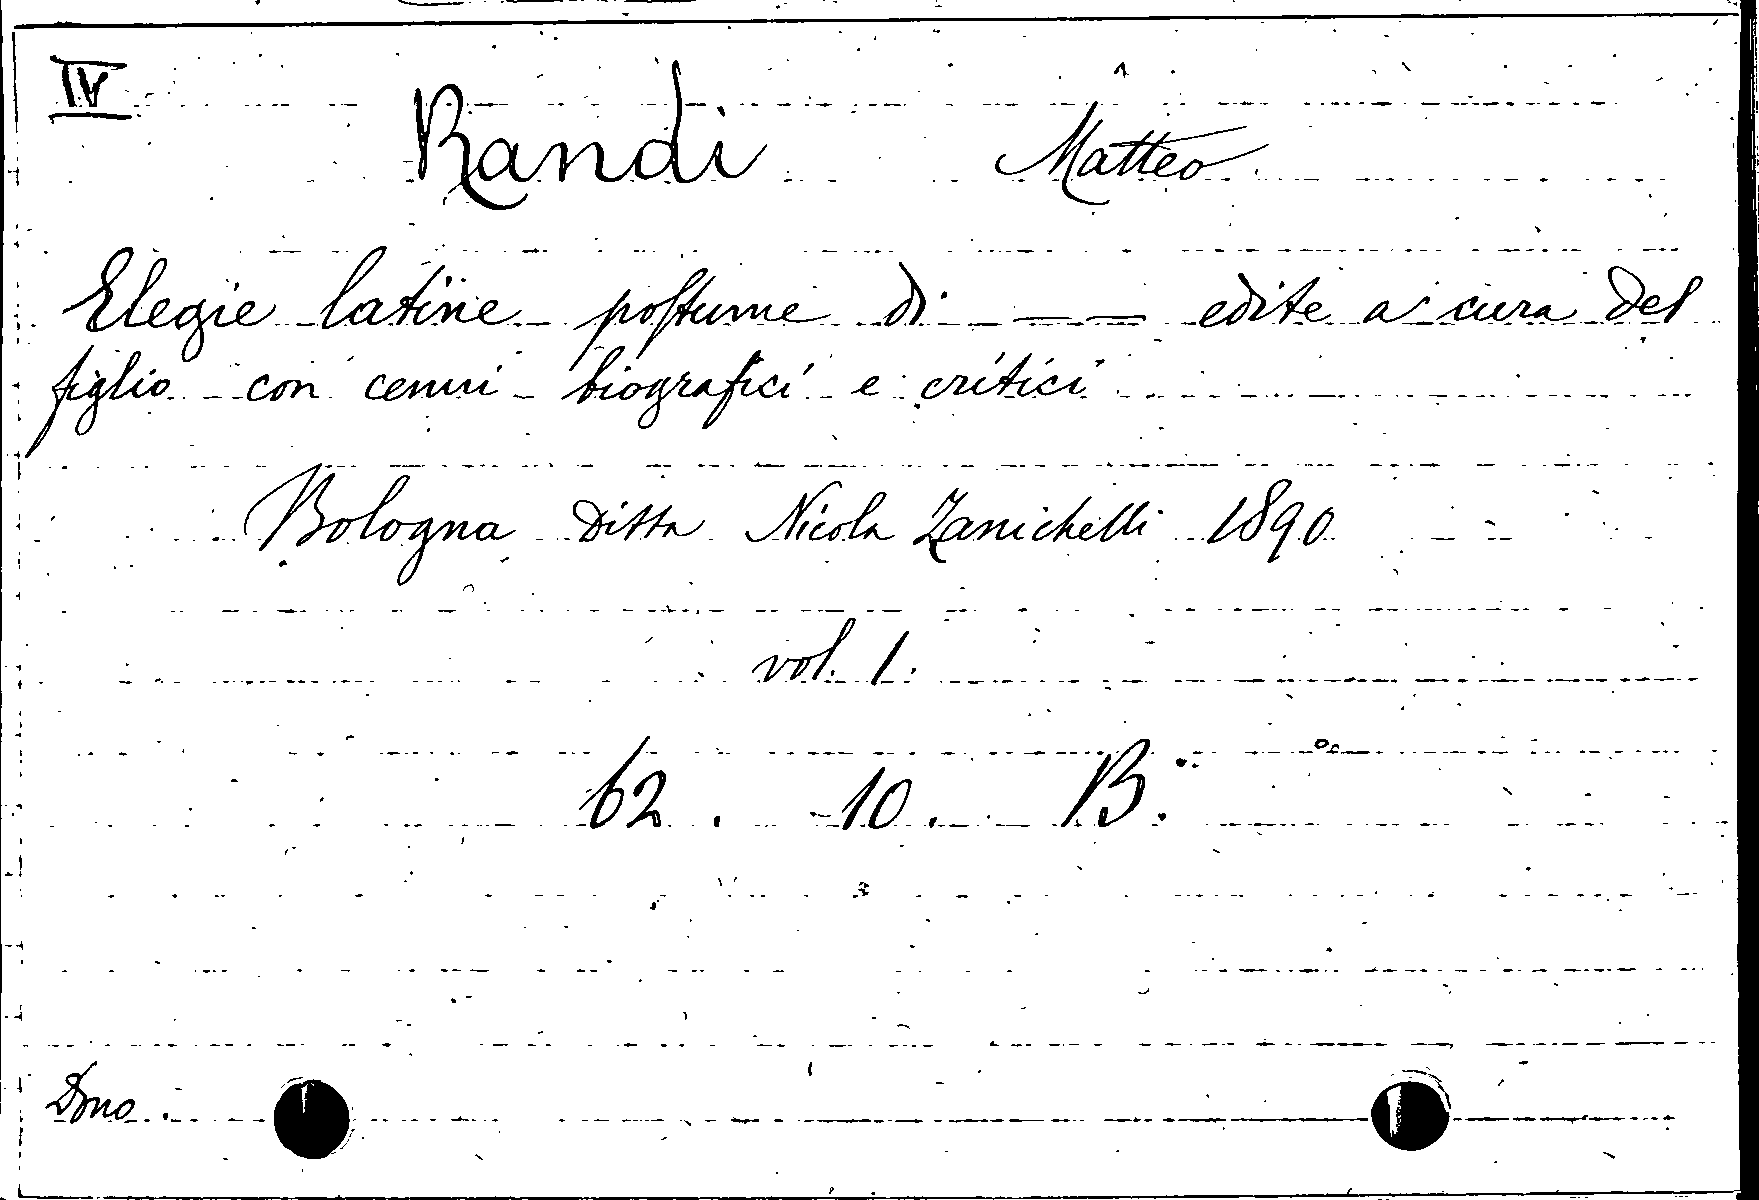 IV
Randi Matteo
Elegie latine postume di — — edite a cura del
figlio con cenni biografici e critici
Bologna Ditta Nicola Zanichelli 1890
vol. 1.
62. 10. B.
Dono.